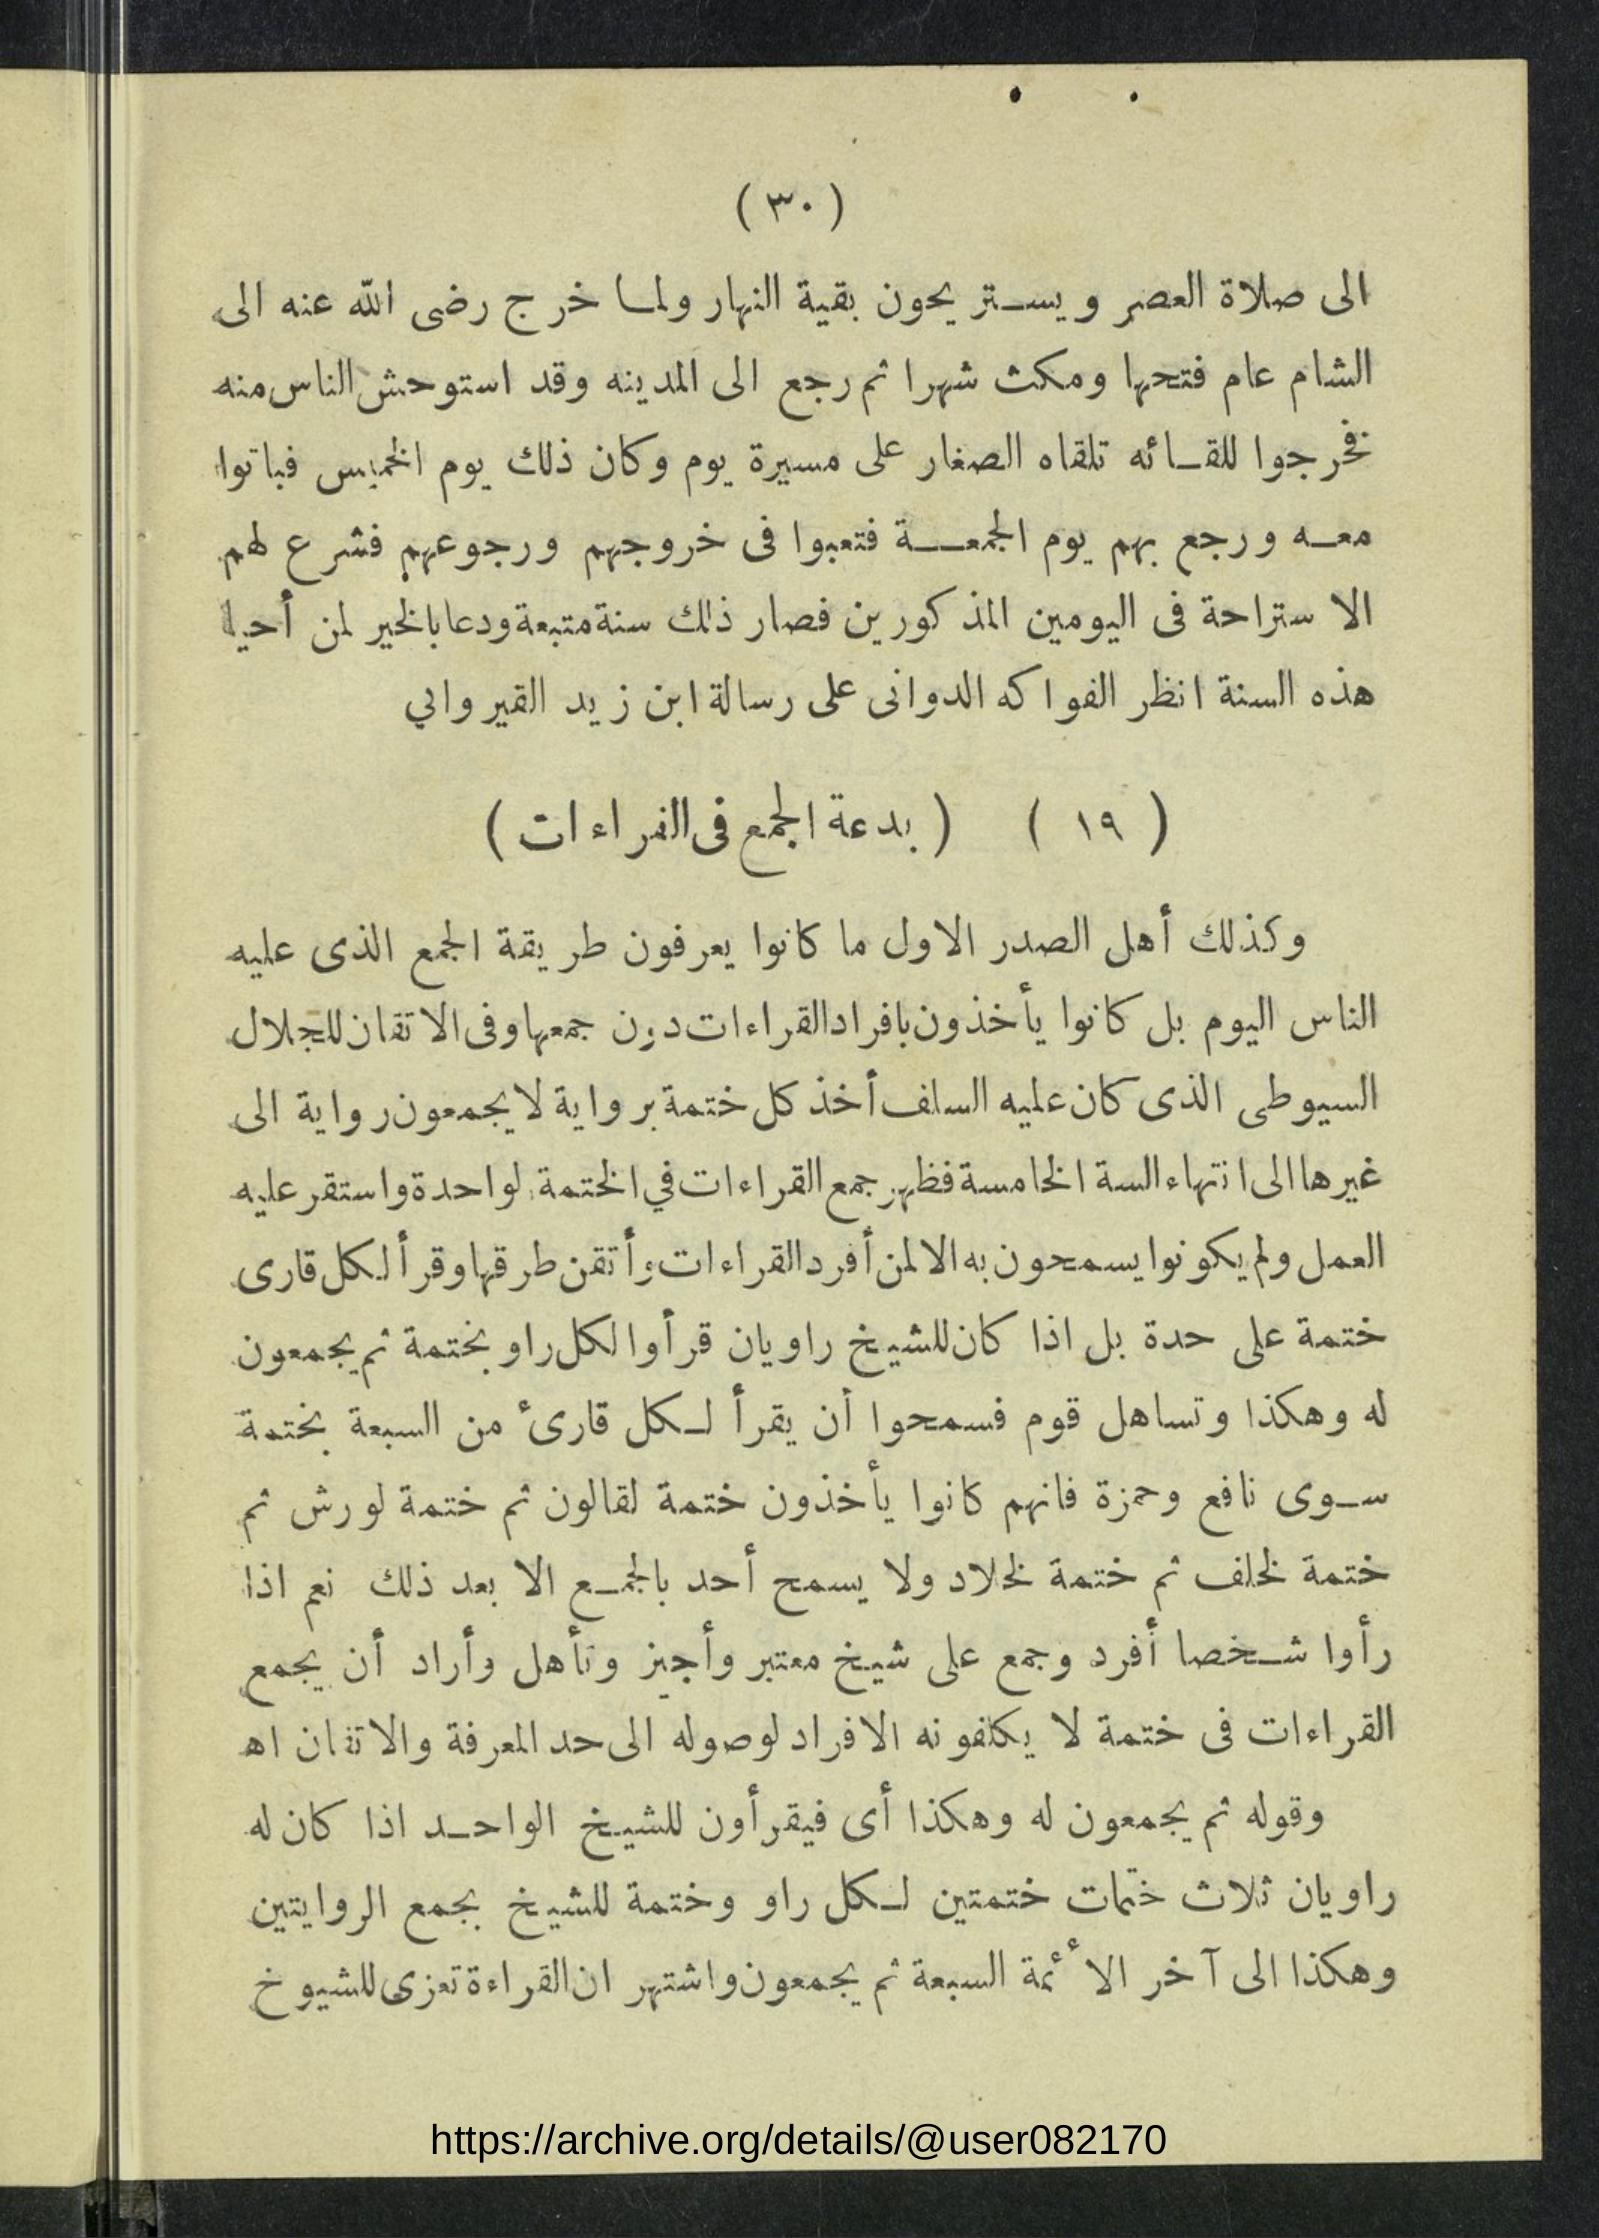 ( ٣٠ )
الى صلاة العصر ويستريحون بقية النهار ولما خرج رضى الله عنه الى
الشام عام فتحها ومكث شهرا ثم رجع الى المدينه وقد استوحش الناس منه
فخرجوا للقائه تلقاه الصغار على مسيرة يوم وكان ذلك يوم الخميس فباتوا
معه ورجع بهم يوم الجمعة فتعبوا فى خروجهم ورجوعهم فشرع لهم
الاستراحة فى اليومين المذكورين فصار ذلك سنة متبعة ودعا بالخير لمن أحيا
هذه السنة انظر الفواكه الدوانى على رسالة ابن زيد القيرواني
( ١٩ ) ( بدعة الجمع فى القراءات )
وكذلك أهل الصدر الاول ما كانوا يعرفون طريقة الجمع الذى عليه
الناس اليوم بل كانوا يأخذون بافراد القراءات دون جمعها وفى الاتقان للجلال
السيوطى الذى كان عليه السلف أخذ كل ختمة برواية لا يجمعون رواية الى
غيرها الى انتهاء السة الخامسة فظهر جمع القراءات في الختمة لواحدة واستقر عليه
العمل ولم يكونوا يسمحون به الا لمن أفرد القراءات وأتقن طرقها وقرأ لكل قارى
ختمة على حدة بل اذا كان للشيخ راويان قرأوا لكل راو بختمة ثم يجمعون
له وهكذا وتساهل قوم فسمحوا أن يقرأ لكل قارئ من السبعة بختمة
سوى نافع وحمزة فانهم كانوا يأخذون ختمة لقالون ثم ختمة لورش ثم
ختمة لخلف ثم ختمة لخلاد ولا يسمح أحد بالجمع الا بعد ذلك نعم اذا
رأوا شخصا أفرد وجمع على شيخ معتبر وأجيز وتأهل وأراد أن يجمع
القراءات فى ختمة لا يكلفونه الافراد لوصوله الى حد المعرفة والاتقان اه
وقوله ثم يجمعون له وهكذا أى فيقرأون للشيخ الواحد اذا كان له
راويان ثلاث ختمات ختمتين لكل راو وختمة للشيخ بجمع الروايتين
وهكذا الى آخر الأئمة السبعة ثم يجمعون واشتهر ان القراءة تعزى للشيوخ
https://archive.org/details/@user082170